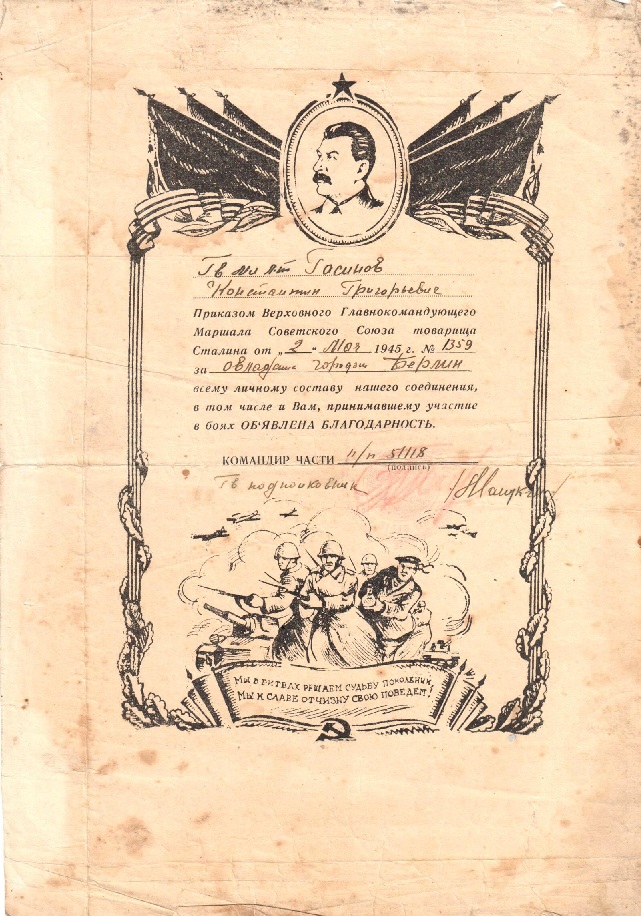 Гв мл л-т Гасинов
Константин Григорьевич
Приказом Верховного Главнокомандующего
Маршала Советского Союза товарища
Сталина от „2" Мая 1945 г. № 1359
за овладение городом Берлин
всему личному составу нашего соединения,
в том числе и Вам, принимавшему участие
в боях ОБ'ЯВЛЕНА БЛАГОДАРНОСТЬ.
КОМАНДИР ЧАСТИ п/п 51118
(подпись)
Гв подполковник
МЫ В БИТВАХ РЕШАЕМ СУДЬБУ ПОКОЛЕНИЙ,
МЫ К СЛАВЕ ОТЧИЗНУ СВОЮ ПОВЕДЕМ!